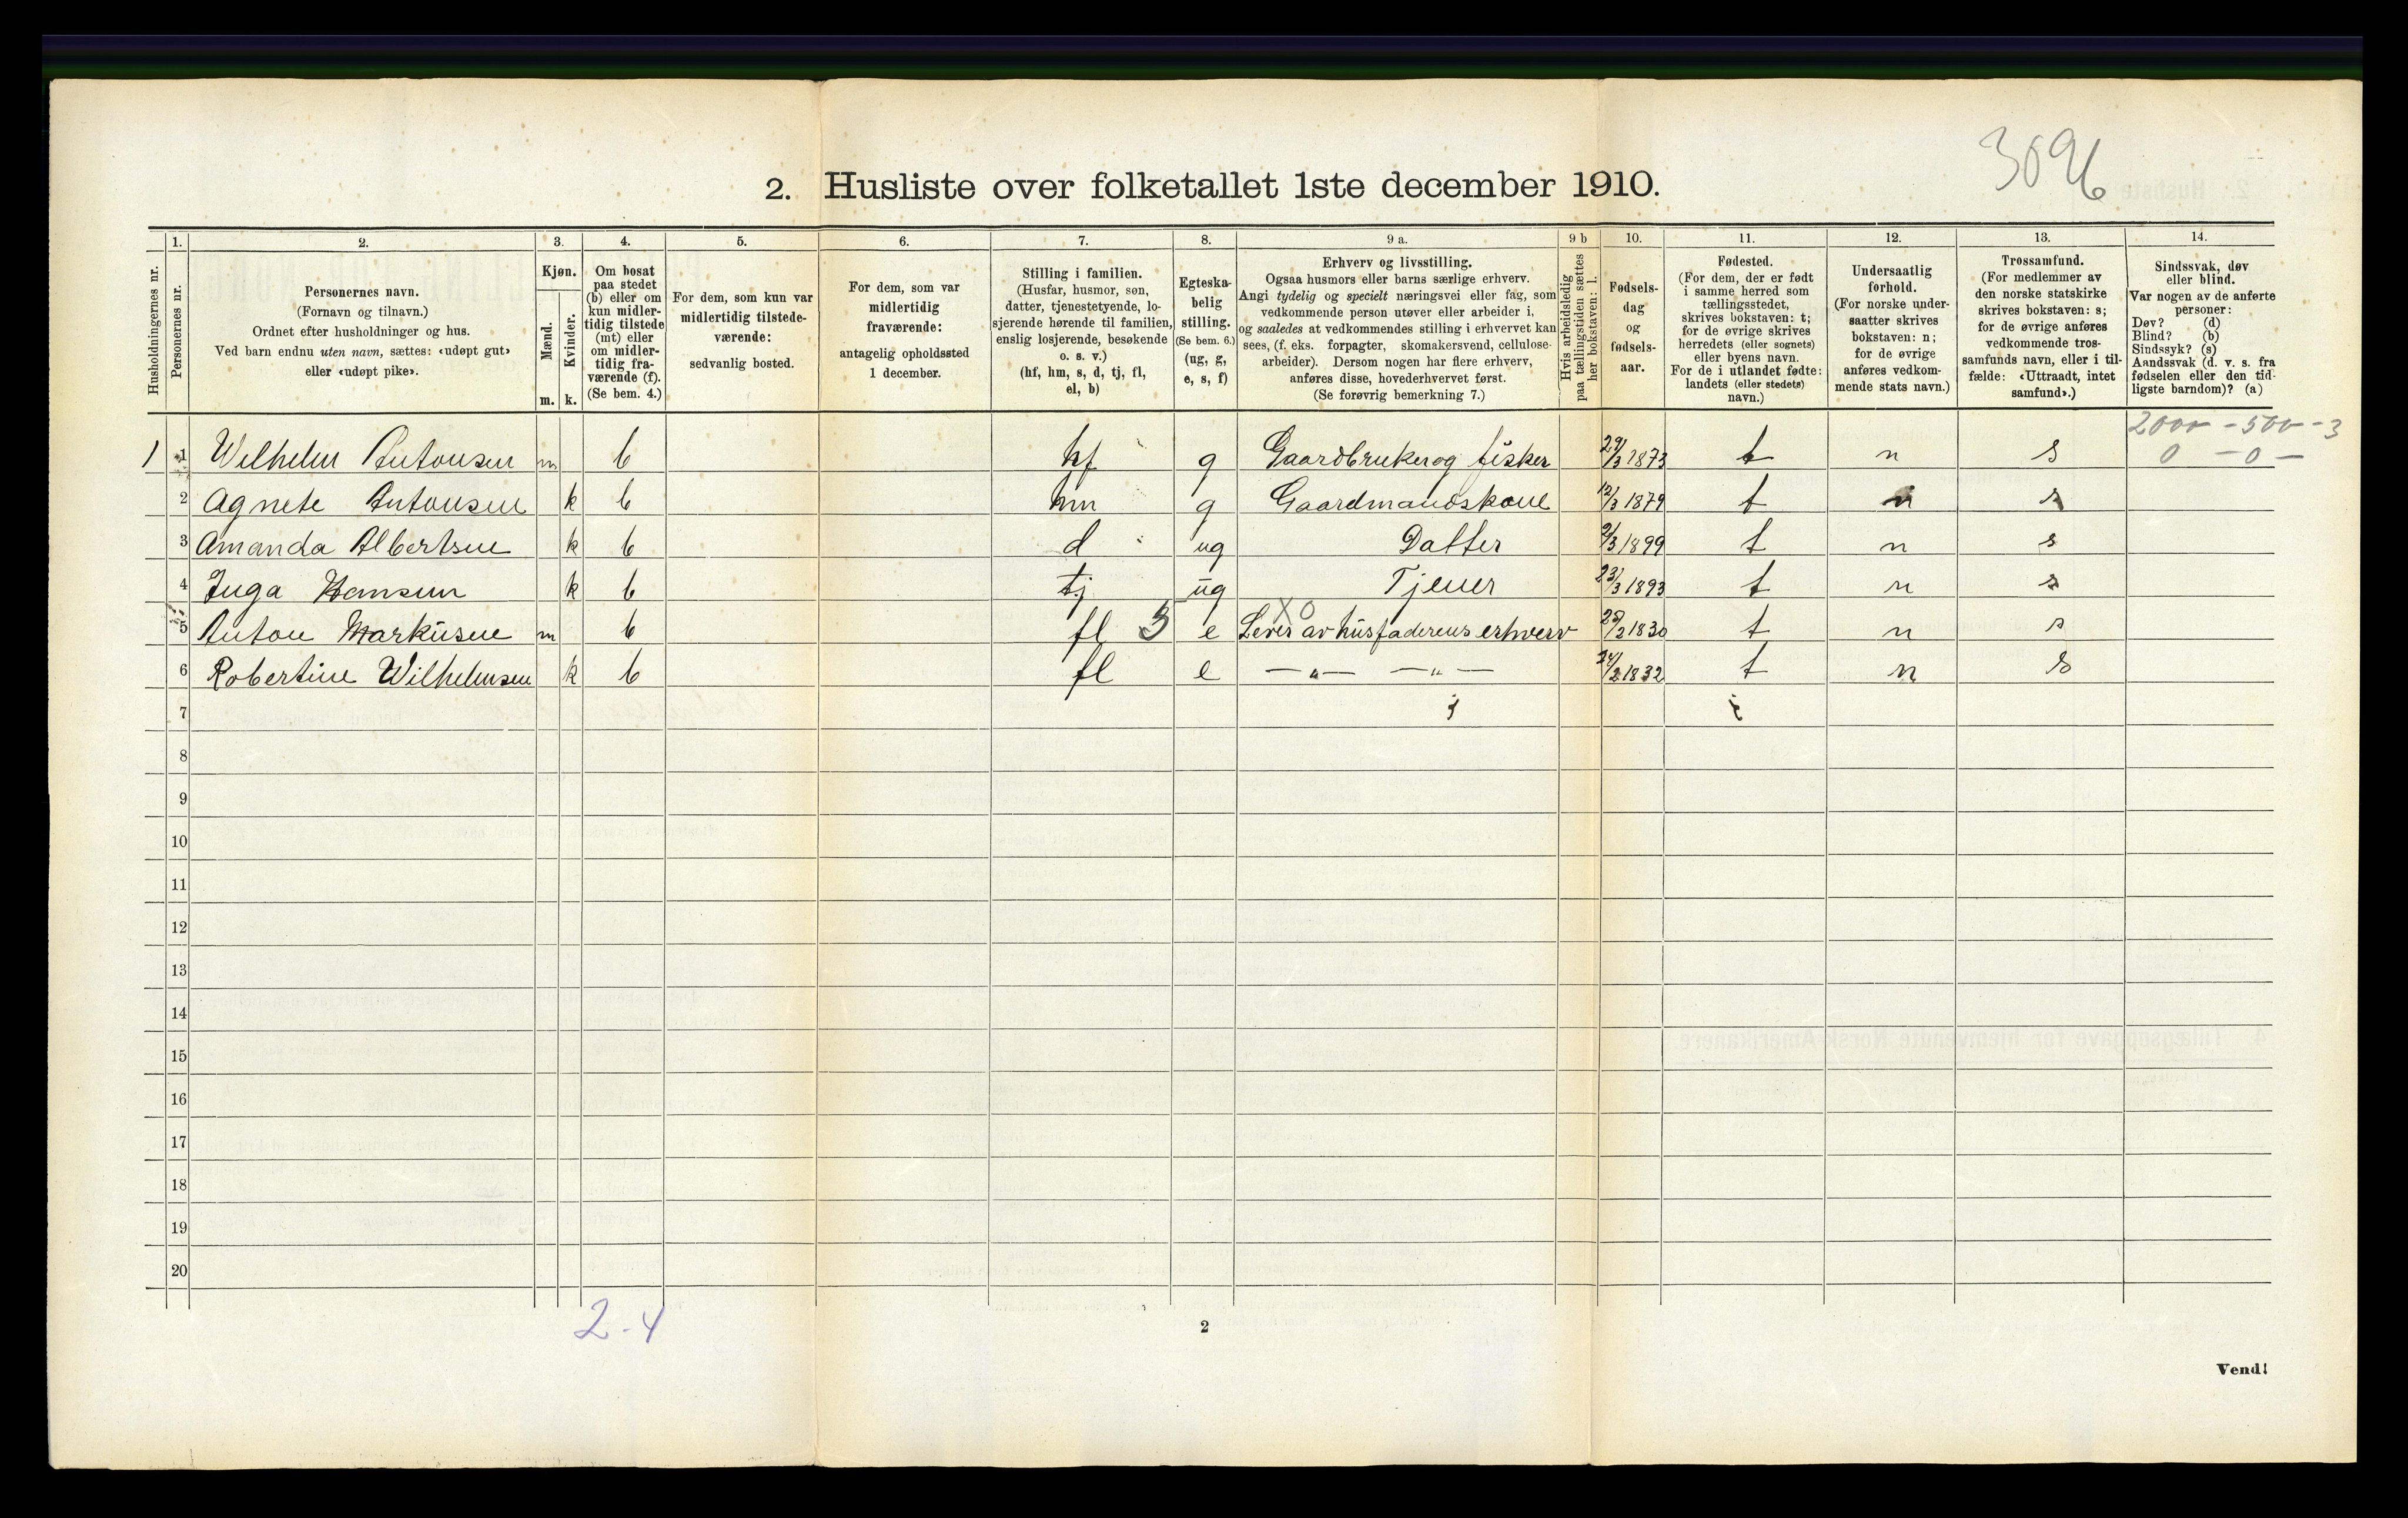 3096
2. Husliste over folketallet 1ste december 1910.
Husholdningernes nr.
1.
Personernes nr.
2.
Personernes navn.
(Fornavn og tilnavn.)
Ordnet efter husholdninger og hus.
Ved barn endnu uten navn, sættes: «udøpt gut»
eller «udøpt pike».
3.
Kjøn.
Mænd.
Kvinder.
m. k.
4.
Om bosat
paa stedet
(b) eller om
kun midler-
tidig tilstede
(mt) eller
om midler-
tidig fra-
værende (f).
(Se bem. 4.)
5.
For dem, som kun var
midlertidig tilstede-
værende:
sedvanlig bosted.
6.
For dem, som var
midlertidig
fraværende:
antagelig opholdssted
1 december.
7.
Stilling i familien.
(Husfar, husmor, søn,
datter, tjenestetyende, lo-
sjerende hørende til familien,
enslig losjerende, besøkende
o. s. v.)
(hf, hm, s, d, tj, fl,
el, b)
8.
Egteska-
belig
stilling.
(Se bem. 6.)
(ug, g,
e, s, f)
9 a.
Erhverv og livsstilling.
Ogsaa husmors eller barns særlige erhverv.
Angi tydelig og specielt næringsvei eller fag, som
vedkommende person utøver eller arbeider i,
og saaledes at vedkommendes stilling i erhvervet kan
sees, (f. eks. forpagter, skomakersvend, cellulose-
arbeider). Dersom nogen har flere erhverv,
anføres disse, hovederhvervet først.
(Se forøvrig bemerkning 7.)
9 b
Hvis arbeidsledig
paa tællingstiden sættes
her bokstaven: l.
10.
Fødsels-
dag
og
fødsels-
aar.
11.
Fødested.
(For dem, der er født
i samme herred som
tællingsstedet,
skrives bokstaven: t;
for de øvrige skrives
herredets (eller sognets)
eller byens navn.
For de i utlandet fødte:
landets (eller stedets)
navn.)
12.
Undersaatlig
forhold.
(For norske under-
saatter skrives
bokstaven: n;
for de øvrige
anføres vedkom-
mende stats navn.)
13.
Trossamfund.
(For medlemmer av
den norske statskirke
skrives bokstaven: s;
for de øvrige anføres
vedkommende tros-
samfunds navn, eller i til-
fælde: «Uttraadt, intet
samfund».)
14.
Sindssvak, døv
eller blind.
Var nogen av de anførte
personer:
Døv? (d)
Blind? (b)
Sindssyk? (s)
Aandssvak (d. v. s. fra
fødselen eller den tid-
ligste barndom)? (a)
2000 - 500 - 3
0 - 0 -
1 1 Wilhelm Antonsen m b hf g Gaardbruker og fisker 29/3 1873 t n s
2 Agnete Antonsen k b hm g Gaardmandskone 12/3 1879 t n s
3 Amanda Albertsen k b d ug Datter 9/3 1899 t n s
4 Inga Hansen k b tj ug Tjener 23/3 1893 t n s
XO
5 Anton Markusen m b fl 5 e Lever av husfaderens erhverv 28/2 1830 t n s
6 Robertine Wilhelmsen k b fl e — „ — — „ — 24/2 1832 t n s
7
8
9
10
11
12
13
14
15
16
17
18
19
20
2-4
2
Vend!